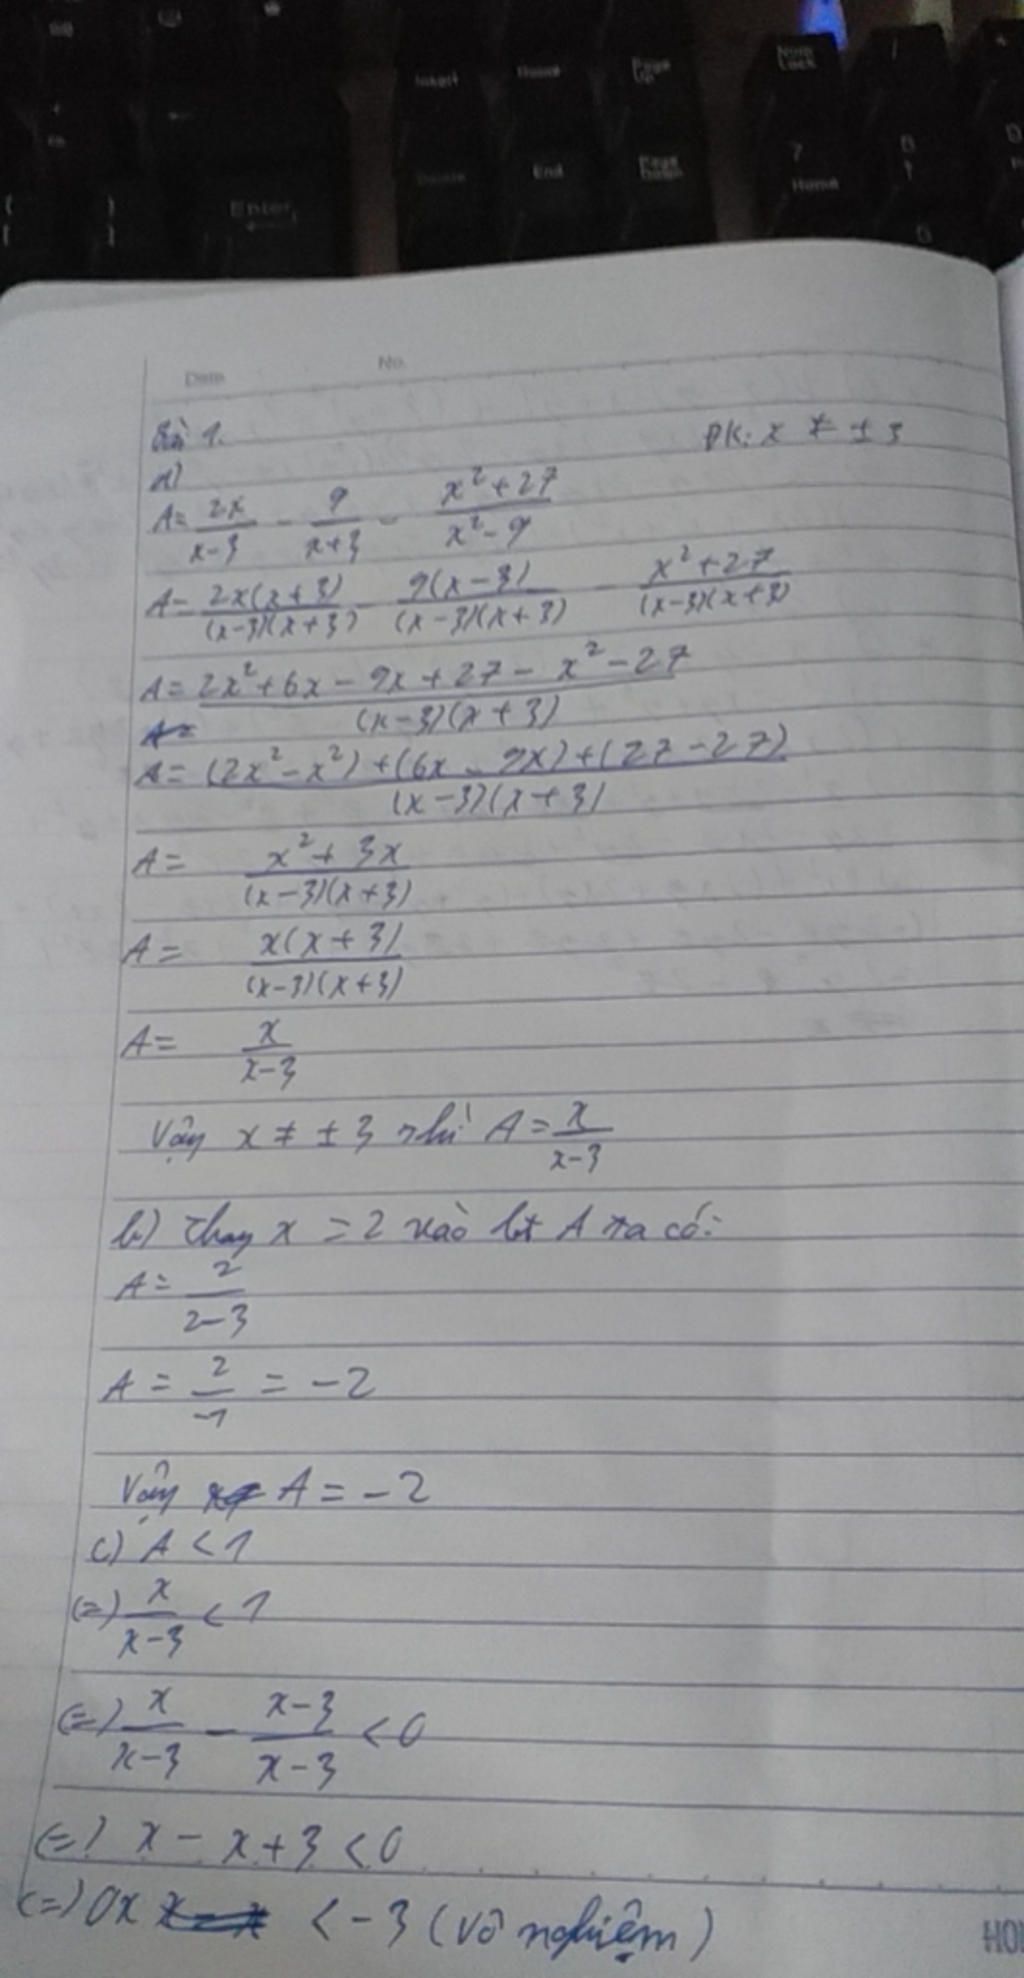 Insert Home Page Up Num Lock /
Delete End Page Down 7 Home 8
Enter
Date No
Bài 1. ĐK: x ≠ ± 3
a)
A = \frac{2x}{x-3} - \frac{9}{x+3} - \frac{x^2+27}{x^2-9}
A = \frac{2x(x+3)}{(x-3)(x+3)} - \frac{9(x-3)}{(x-3)(x+3)} - \frac{x^2+27}{(x-3)(x+3)}
A = \frac{2x^2+6x-9x+27-x^2-27}{(x-3)(x+3)}
A = \frac{(2x^2-x^2)+(6x-9x)+(27-27)}{(x-3)(x+3)}
A = \frac{x^2+3x}{(x-3)(x+3)}
A = \frac{x(x+3)}{(x-3)(x+3)}
A = \frac{x}{x-3}
Vậy x ≠ ± 3 thì A = \frac{x}{x-3}
b) Thay x = 2 vào bt A ta có:
A = \frac{2}{2-3}
A = \frac{2}{-1} = -2
Vậy A = -2
c) A < 1
(=) \frac{x}{x-3} < 1
(=) \frac{x}{x-3} - \frac{x-3}{x-3} < 0
(=) x - x + 3 < 0
(=) 0x < -3 (vô nghiệm)